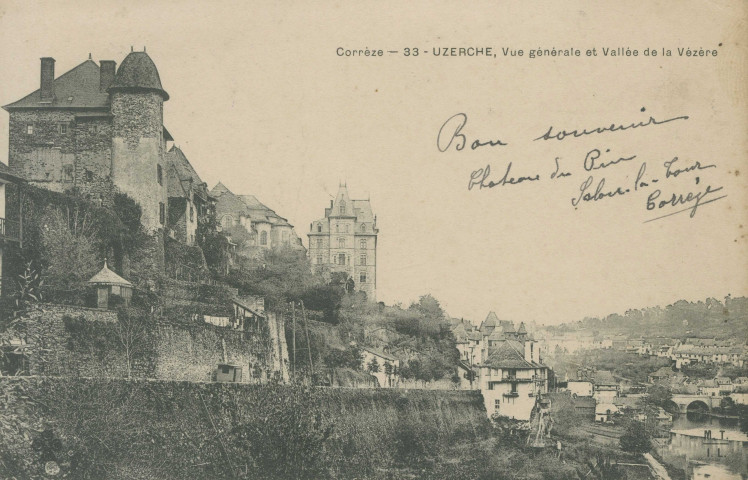 Corrèze — 33 - UZERCHE, Vue générale et Vallée de la Vézère
Bon souvenir
Chateau du Pin
Salon-la-Tour
Corrèze
M T